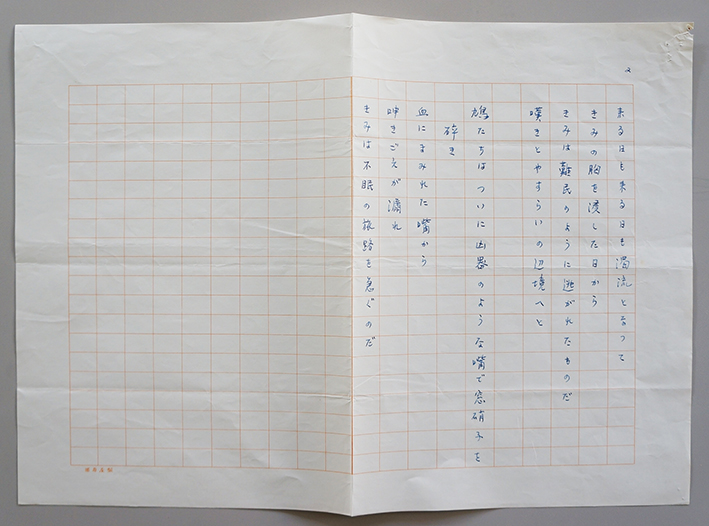 2
来る日も来る日も濁流となって
きみの胸を浸した日から
きみは難民のように逃がれたものだ
嘆きとやすらいの辺境へと
鳩たちはついに凶器のような嘴で窓硝子を
砕き
血にまみれた嘴から
呻きごえが漏れ
きみは不眠の旅路を急ぐのだ